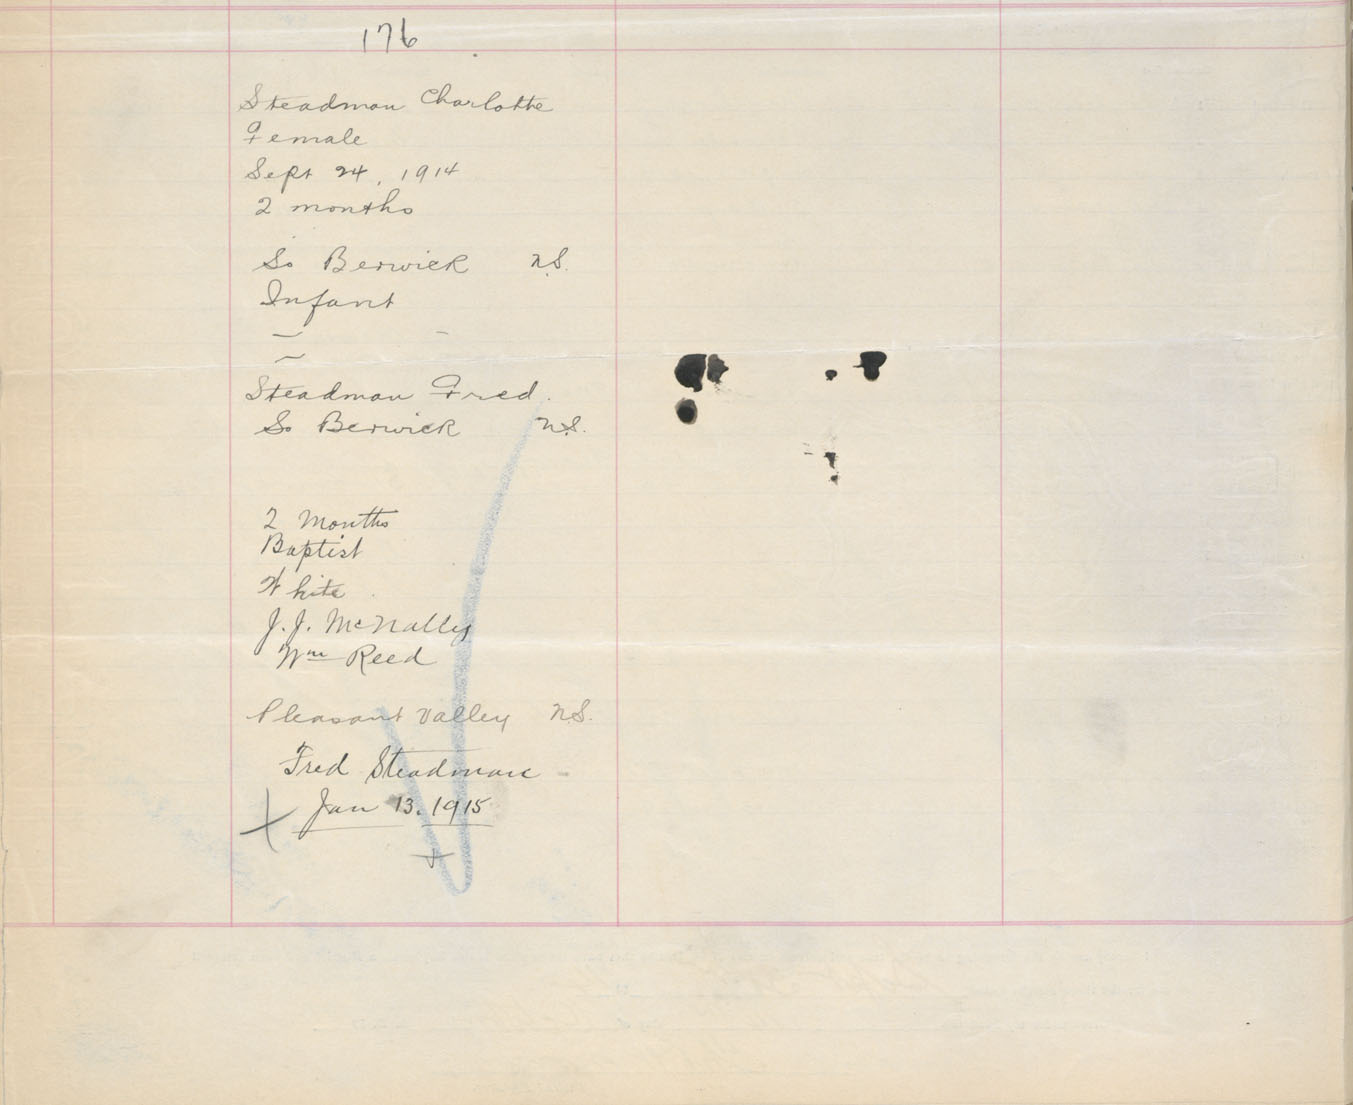 176
Steadman Charlotte
Female
Sept 24, 1914
2 months
So Berwick N.S.
Infant
Steadman Fred.
So Berwick N.S.
2 Months
Baptist
White
J. J. McNally
Wm Reed
Pleasant Valley N.S.
Fred Steadman
Jan 13. 1915